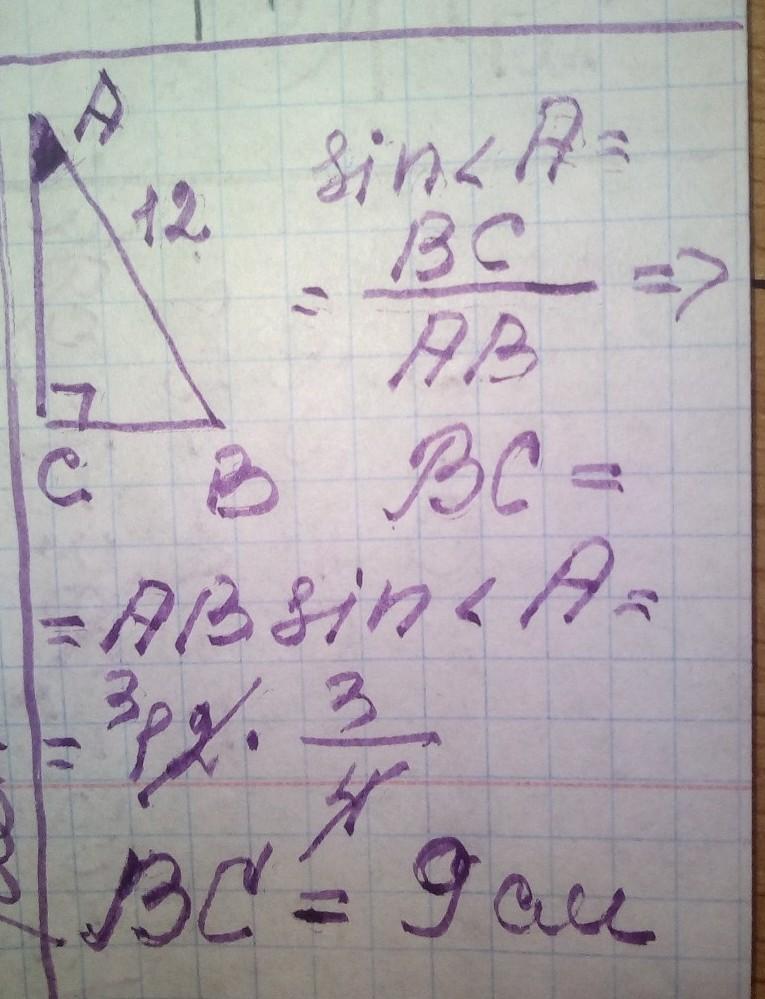 A
12
C B
sin < A =
= BC / AB =>
BC =
= AB sin < A =
= ³12 · 3/4
BC = 9 см